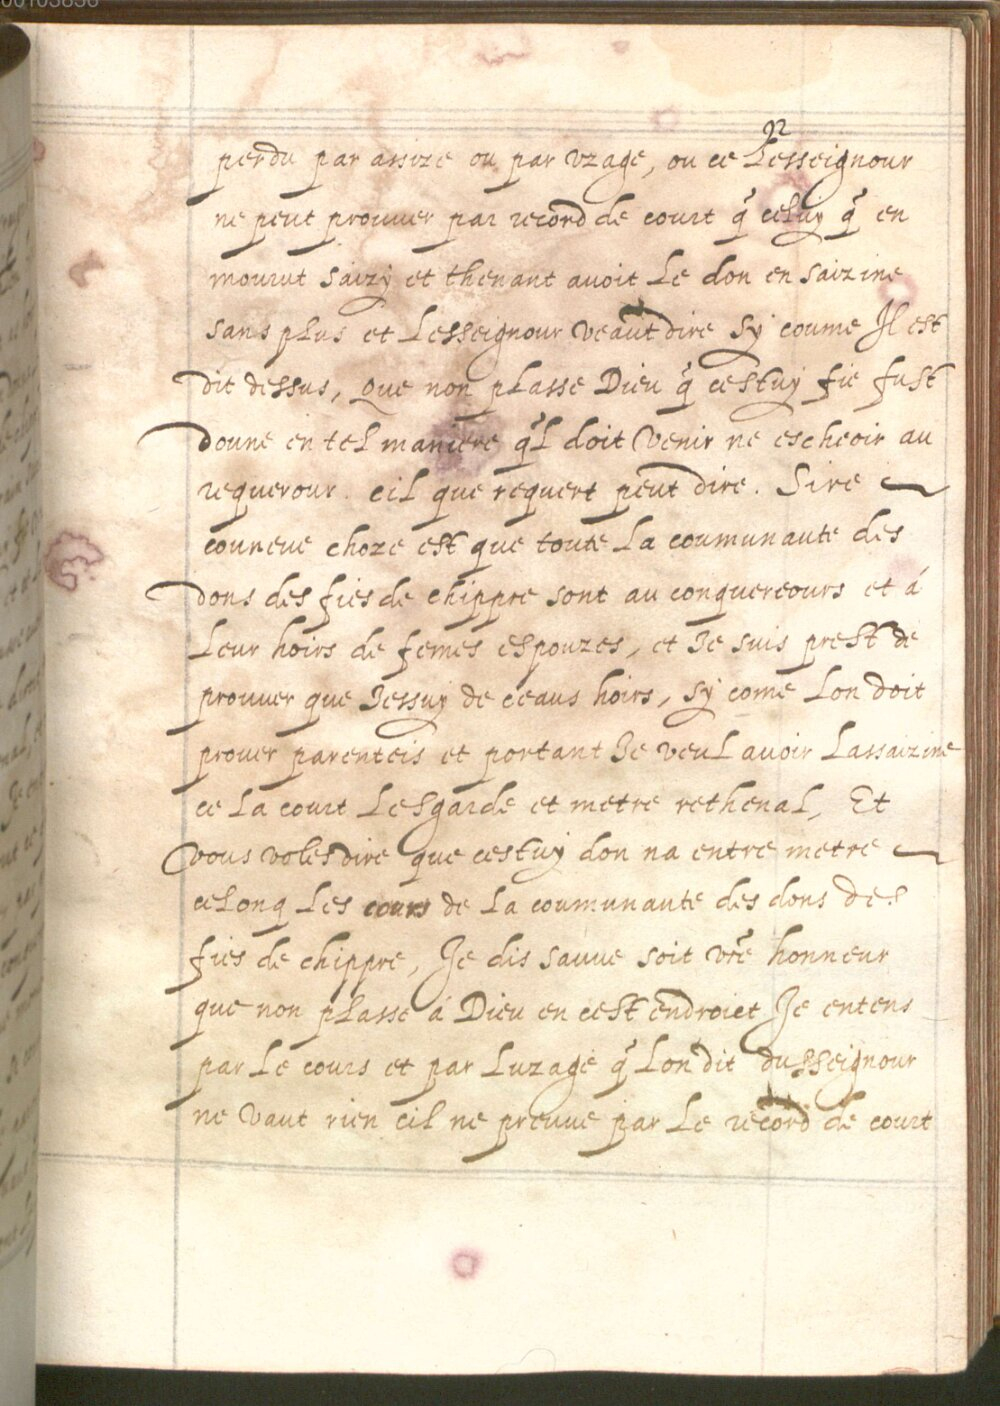 00103838
92
perdu par assize ou par vzage, ou ce Lesseignour
ne peut prouver par record de court q̃ celuy q̃ en
mourut saizy et thenant avoit Le don en saizine
sans plus et Lesseignour veaut dire sy coume Il est
dit dessus, Que non plasse Dieu q̃ cestuy fié fust
doune en tel maniere q̃l doit venir ne escheoir au
requerour. cil que requert peut dire. Sire
couneue choze est que toute La coumunaute des
dons des fiés de chippre sont au conquereours et á
Leur hoirs de femes espouzes, et Je suis prest de
prouver que Jessuy de ceaus hoirs, sy come Lon doit
prover parenteis et portant Je veul avoir Lassaizine
ce La court Lesgarde et metre rethenal, Et
vous volés dire que cestuy don na entre metre
celonq Les cours de La coumunaute des dons des
fiés de chippre, Je dis sauve soit vr̃e honneur
que non plasse á Dieu en cest endroict Je entens
par Le cours et par Luzage q̃ Lon dit du sseignour
ne vaut rien cil ne preuve par Le record de court